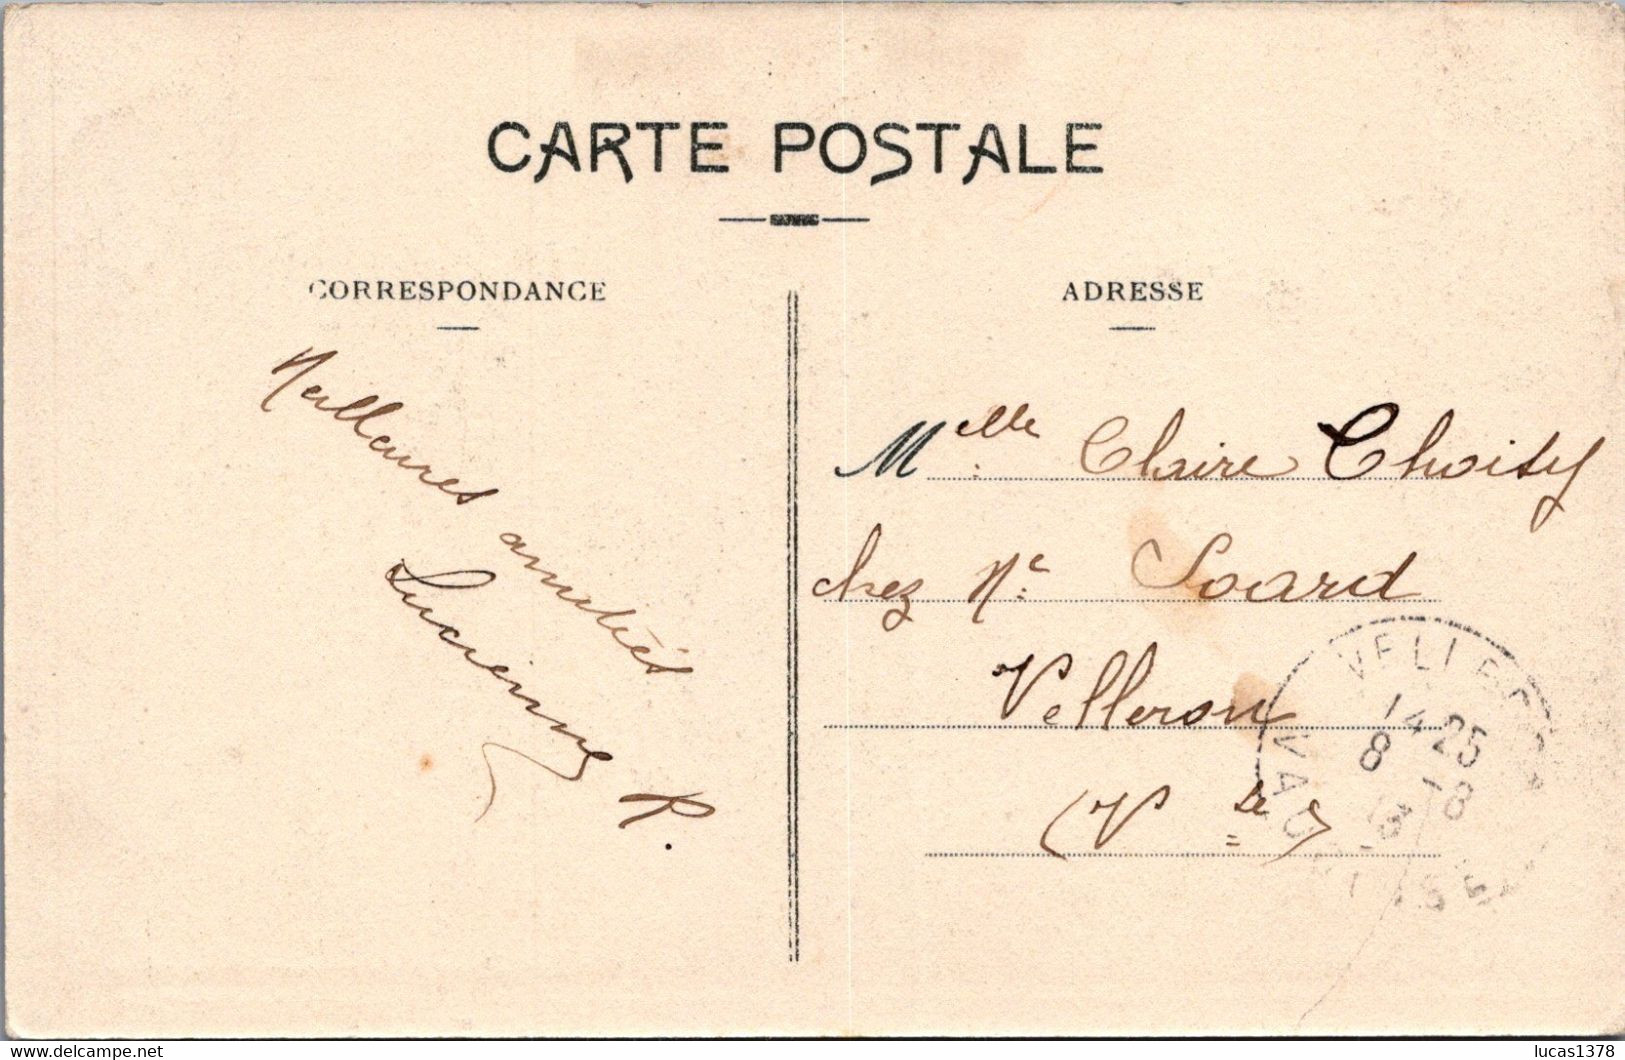 CARTE POSTALE
CORRESPONDANCE
ADRESSE
Meilleures amitiés
Lucienne P.
Melle Claire Choisy
chez Me Soard
Velleron
(Vse)
14 25
8 - 8
VAUCLUSE
www.delcampe.net
lucas1378